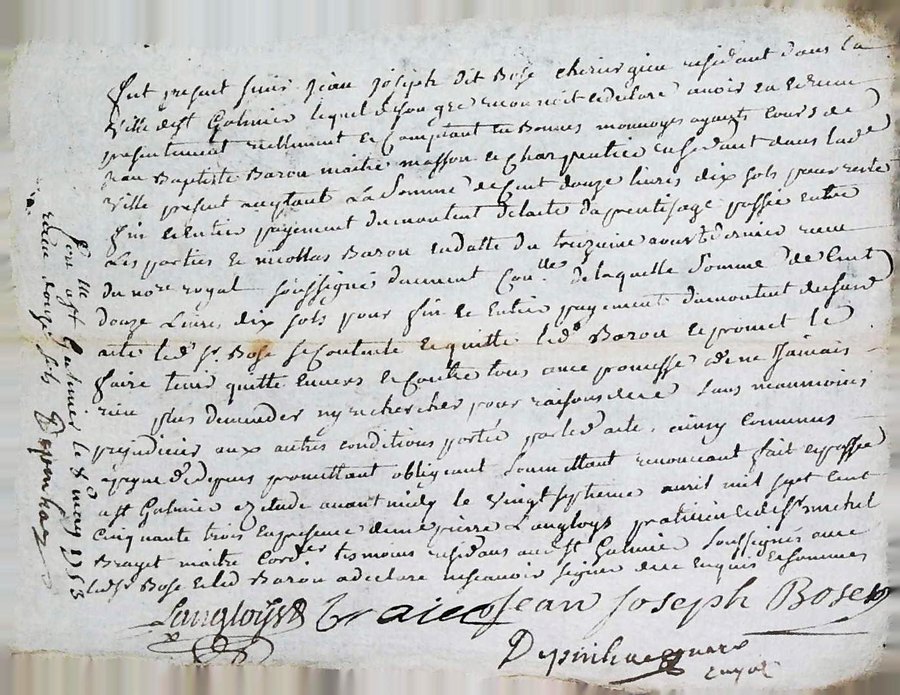 fut present sieur Jean Joseph Dit Bose chirurgien residant dans la
Ville de st Galmier lequel de son gre reconnoit et declare avoir eu et receu
presentement reellement et Comptant en Bonnes monnoyes ayants Cours de
Jean Baptiste Barou maitre masson et Charpentier residant dans lad
Ville present acceptant La Somme de Cent douze livres dix sols pour reste
fin et Entier payement du montent de lacte daprentisage passée entre
Les parties et nicollas Barou en datte du treizieme aoust dernier receu
Du no.re royal soussigné duement Con.lle de laquelle Somme de Cent
douze Livres dix sols pour fin et Entier payement du montent du susd
acte led sr Bose se Contente et quitte led Barou et promet le
faire tenir quitte Envers et Contre tous avec promesse de ne Jamais
rien plus demender ny rechercher pour raison sans neanmoins
prejudicier aux autres conditions portée par led acte, ainsy Convenus
promettant obligeant Soumettant renonceant fait et passé
a st Galmier etude avant midy le vingt septieme avril mil sept Cent
Cinquante trois En presence de me pierre Langloys praticien et de sr michel
Brayet maitre Cord.er temoins residans aud st Galmier Soussignés avec
led sr Bose et led Barou a declaré ne scavoir signer de ce Enquis et sommés
Langloys Jean Joseph Bose
Depinhac
royal
Con.lle a st Galmier le 8 may 1753
receu douze sols Depinhac